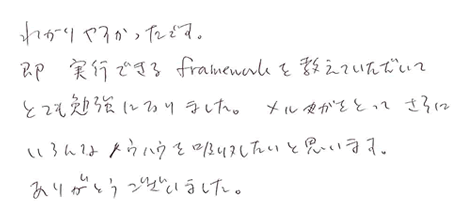 わかりやすかったです。
即 実行できる frameworkを教えていただいて
とても勉強になりました。 メルマガをとって さらに
いろんなノウハウを吸収したいと思います。
ありがとうございました。